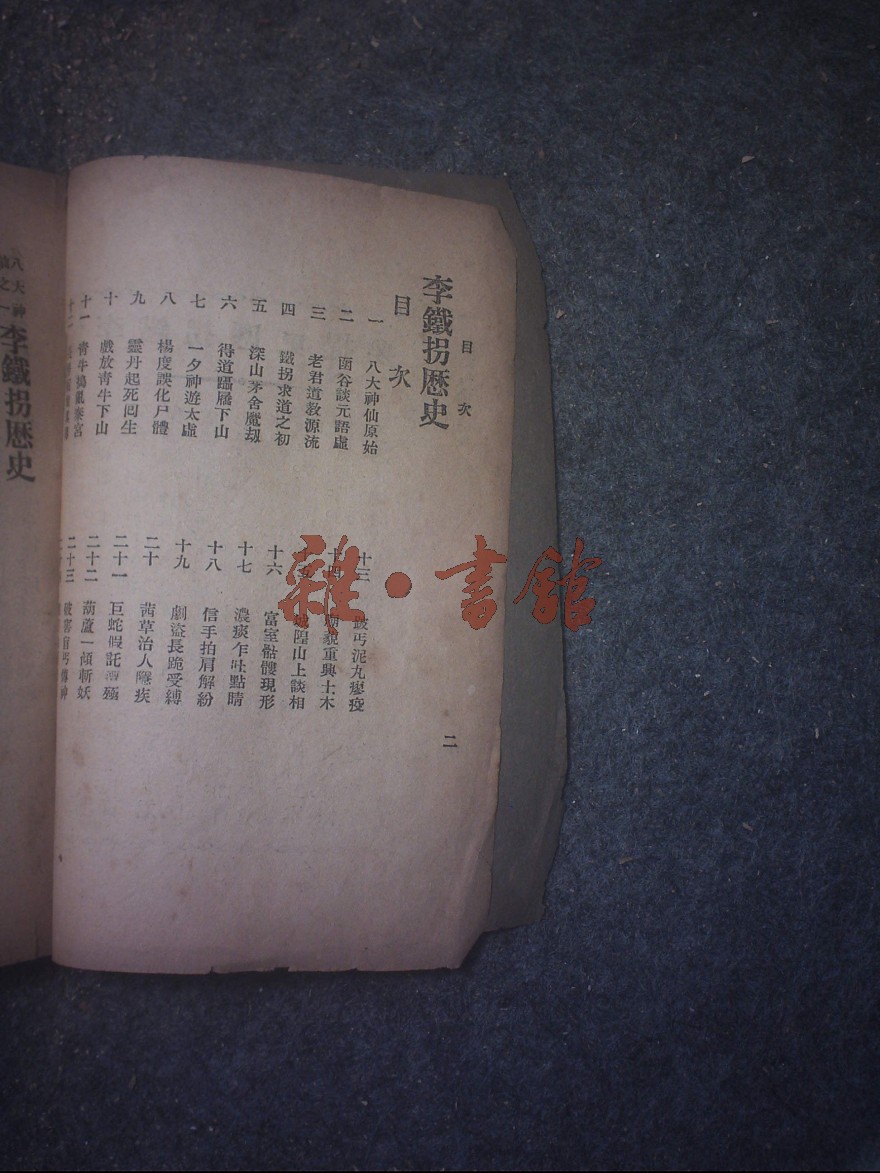 目次
李鐵拐歷史
目次
一 八大神仙原始
二 函谷談元語虛
三 老君道教源流
四 鐵拐求道之初
五 深山茅舍魔刼
六 得道躡屩下山
七 一夕神遊太虛
八 楊度誤化尸體
九 靈丹起死囘生
十 戲放靑牛下山
十一 靑牛撓亂秦宮
十二
十三 跛丐泥丸瘳疫
十四 廟貌重興土木
十五 城隍山上談相
十六 富室骷髏現形
十七 濃痰乍吐點睛
十八 信手拍肩解紛
十九 劇盜長跪受縛
二十 茜草治人隱疾
二十一 巨蛇假託
二十二 葫蘆一傾斬妖
二十三 破窰宿丐
二
八大神
之一
李鐵拐歷史
雜·書館